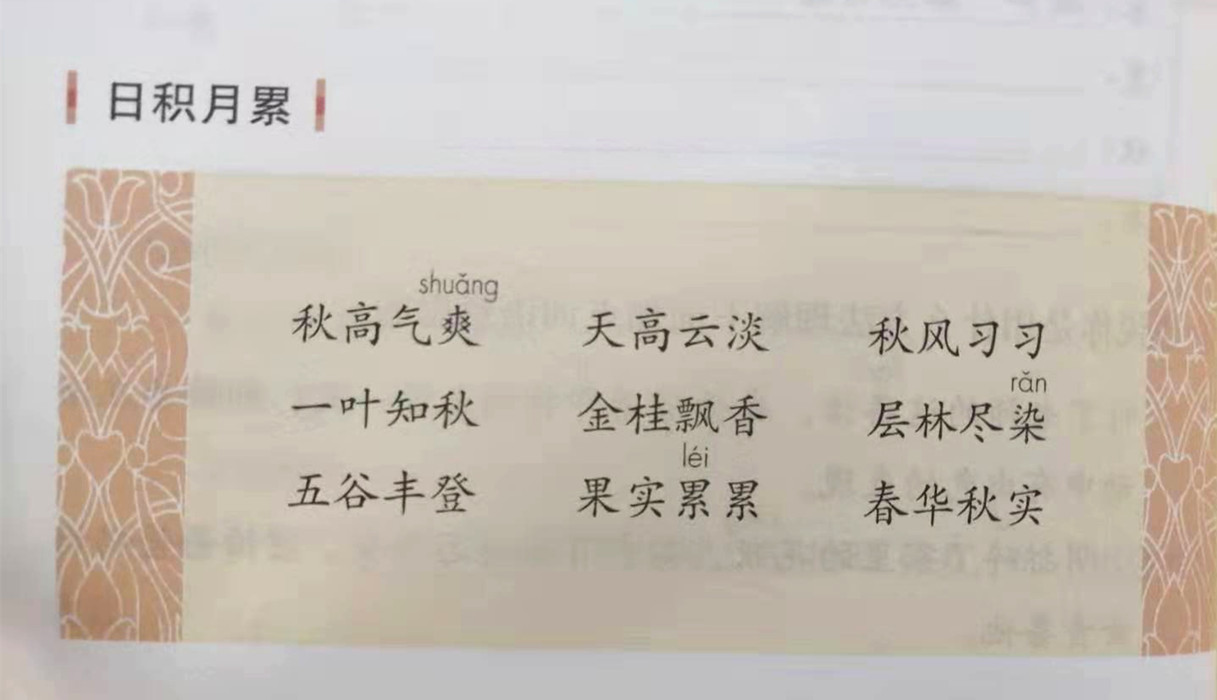 日积月累
shuǎng
秋高气爽 天高云淡 秋风习习
rǎn
一叶知秋 金桂飘香 层林尽染
léi
五谷丰登 果实累累 春华秋实